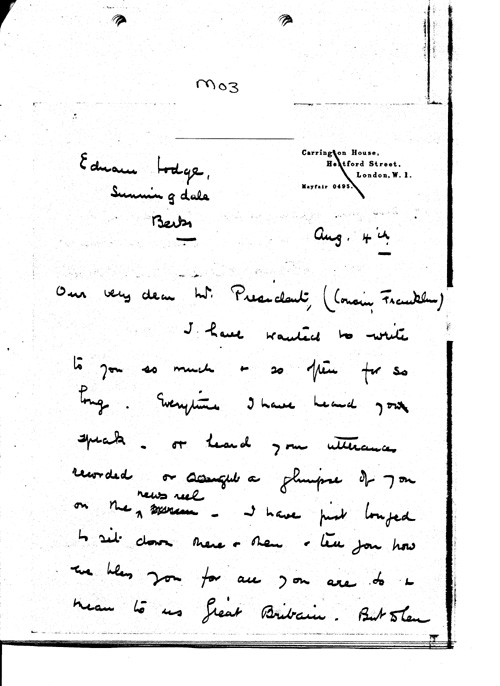 M03
Carrington House,
Hertford Street,
London, W. 1.
Mayfair 0495.
Lodge,
Sunningdale
Berks
Aug. 4th
Our very dear Mr. President, (Cousin Franklin)
I have wanted to write
to you so much & so often for so
long. Everytime I have heard you
speak - or heard your utterances
recorded or caught a glimpse of you
on the news reel - I have just longed
to sit down there & then & tell you how
we bless you for all you are do &
mean to us Great Britain. But then